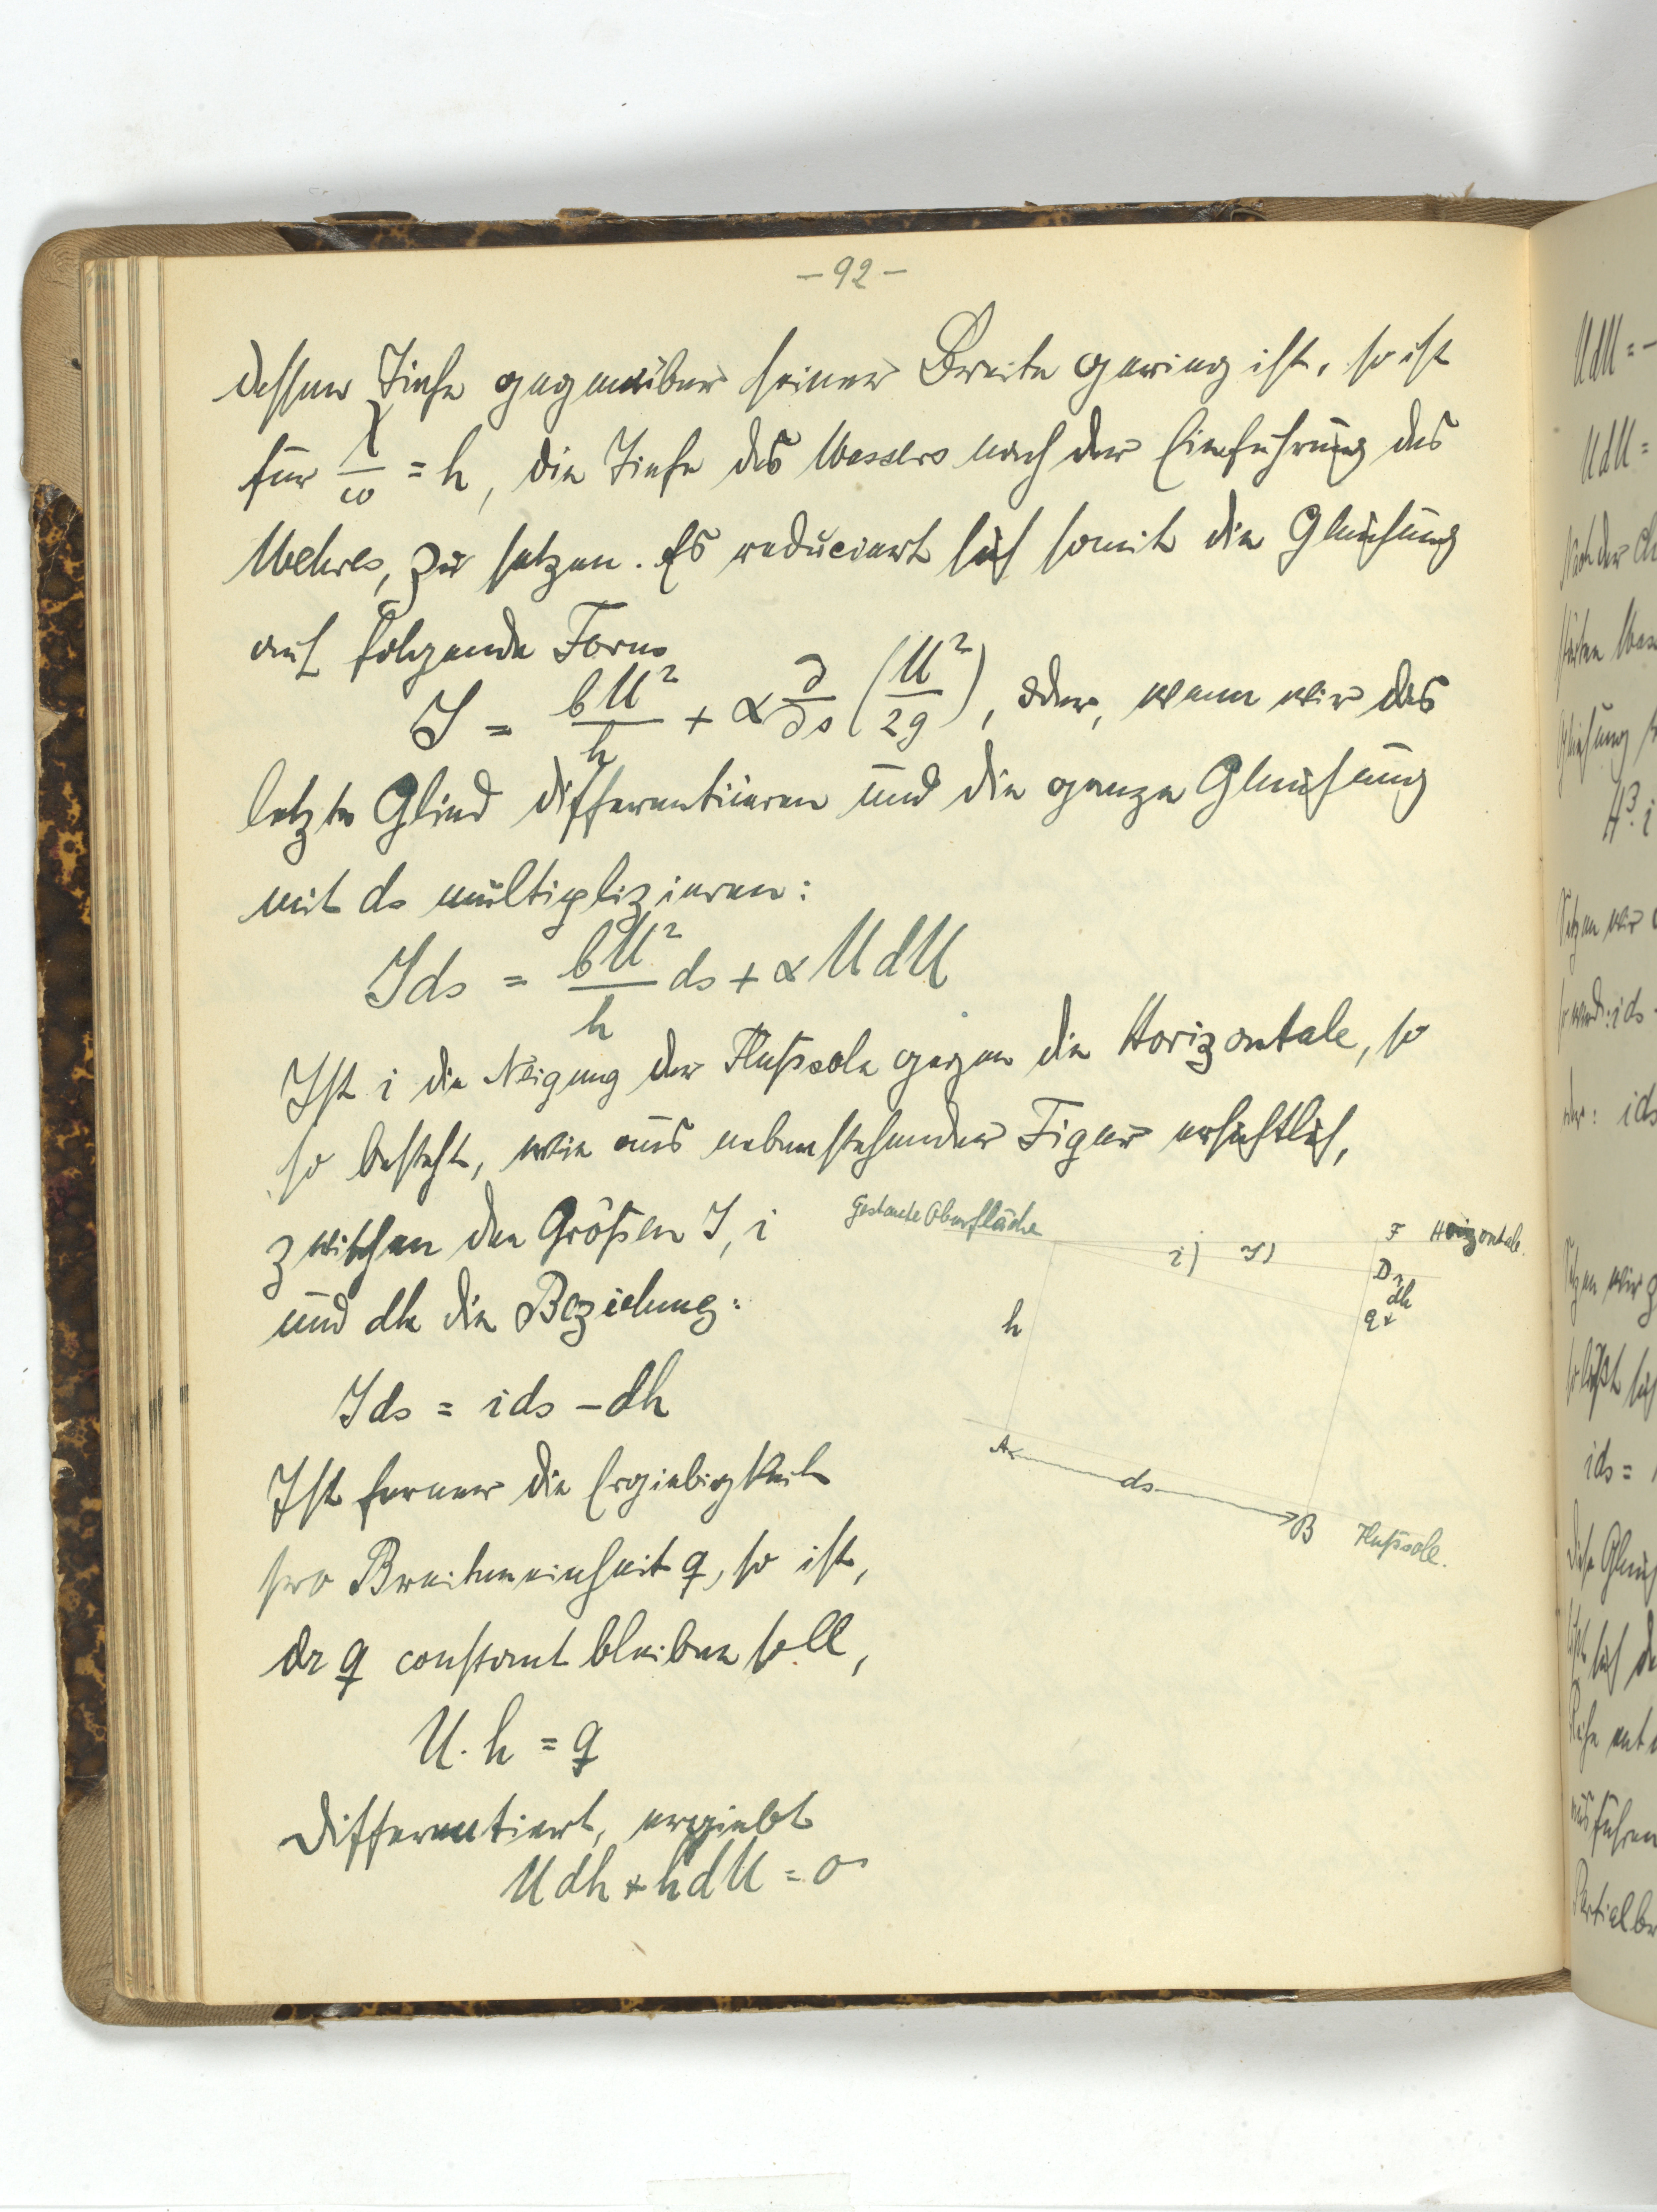 - 92 -
dessen Tiefe gegenüber seiner Breite gering ist, so ist
für χ/ω = h, die Tiefe des Wassers nach der Einführung des
Wehres, zu setzen. Es reduciert sich somit die Gleichung
auf folgende Form
J = bU²/h + α ∂/∂s (U²/2g), oder, wenn wir das
letzte Glied differentiieren und die ganze Gleichung
mit ds multiplizieren:
Jds = bU²/h ds + α UdU
Ist i die Neigung der Flußsole gegen die Horizontale, so
so besteht, wie aus nebenstehender Figur ersichtlich,
zwischen den Größen J, i
und dh die Beziehung:
Jds = ids - dh
Ist ferner die Ergiebigkeit
pro Breiteneinheit q, so ist,
da q constant bleiben soll,
U. h = q
differentiert, ergiebt
Udh + hdU = 0
Gestaute Oberfläche
i) J)
F Horizontale.
D
dh
h
A
ds
B
Flußsole.
UdU = -
UdU =
Nach der
Gleichung
H³. i
Setzen wir
ids -
oder: ids
Setzen wir
so läßt sich
ids =
diese
läßt sich
Reihe
ausführen